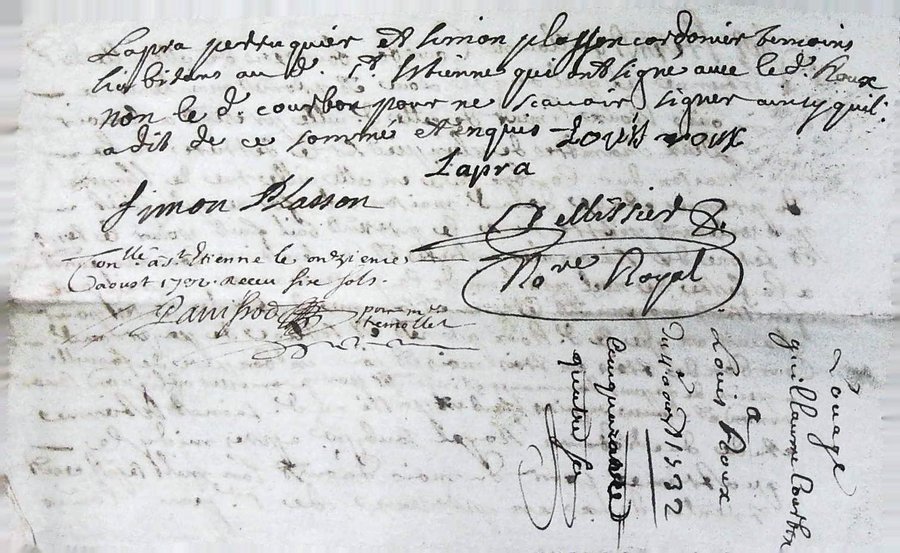 Lapra perruquier et simon plasson cordonier temoins
habitans au d. St. Estienne qui ont signé avec le d. Roux
non le d. courbon pour ne scavoir signer ainsy quil
a dit de ce sommé et enquis Louis roux
Lapra
Simon Plasson
Pellissier
No.re Royal
Con.llé à St. Etienne le onzieme
aoust 1732. Receu six sols.
pour m.r
Louage
guillaume Courbon
a
Louis Roux
Du 4e aoust 1732